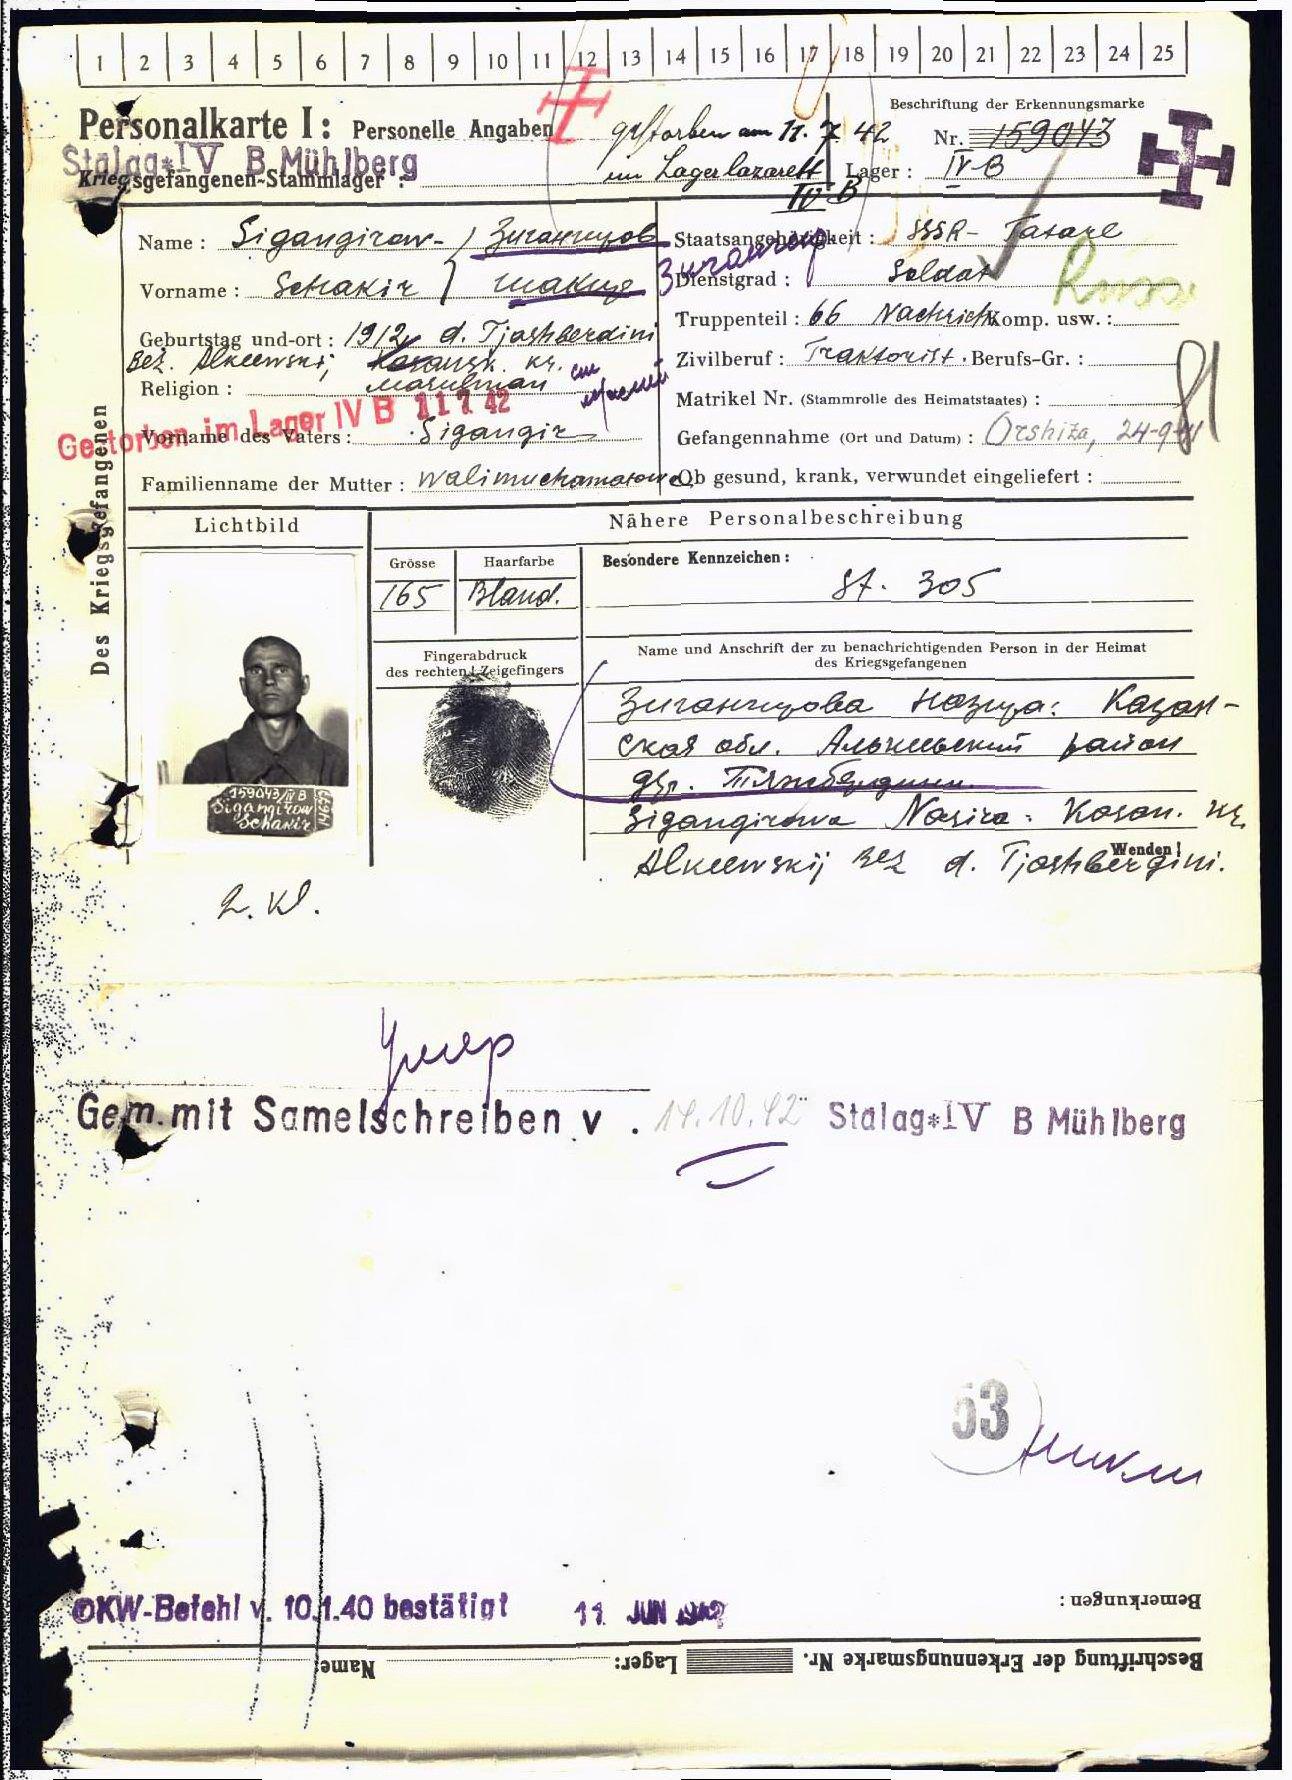 1 2 3 4 5 6 7 8 9 10 11 12 13 14 15 16 17 18 19 20 21 22 23 24 25
Personalkarte I: Personelle Angaben
gestorben am 11. 7. 42
im Lagerlazarett
IV B
Beschriftung der Erkennungsmarke
Nr. 159043
Lager: IV-B
Stalag*IV B Mühlberg
Kriegsgefangenen-Stammlager:
Des Kriegsgefangenen
Name: Sigangirow- Зигангиров
Vorname: Schakir Шакир
Geburtstag und -ort: 1912 d. Tjashberdini
Bez. Alkeewskij Kasansk. kr.
Religion: Masulman
Gestorben im Lager IV B 11 7. 42
Vorname des Vaters: Sigangir
Familienname der Mutter: Walimuchamatowa
Staatsangehörigkeit: SSSR- Tatare
Зигангир
Dienstgrad: Soldat
Russe
Truppenteil: 66 Nachrich. Komp. usw.:
Zivilberuf: Traktorist. Berufs-Gr.:
Matrikel Nr. (Stammrolle des Heimatstaates):
Gefangennahme (Ort und Datum): Orshiza, 24-9-41
Ob gesund, krank, verwundet eingeliefert:
Lichtbild
Nähere Personalbeschreibung
Grösse
Haarfarbe
Besondere Kennzeichen:
165
Bland.
St. 305
Fingerabdruck
des rechten Zeigefingers
Name und Anschrift der zu benachrichtigenden Person in der Heimat
des Kriegsgefangenen
Зигангирова Назира: Казан-
ская обл. Алькеевский район
дер. Тяжбердини
Sigangirowa Nasira: Kasan. kr.
Alkeewskij Bez d. Tjashbergini.
Wenden!
159043/IV B
Sigangirow
Schakir
2. Kl.
Умер
Gem. mit Samelschreiben v. 14.10.42 Stalag*IV B Mühlberg
53
OKW-Befehl v. 10.1.40 bestätigt 11 JUN 1942
Bemerkungen:
Beschriftung der Erkennungsmarke Nr. Lager: Name: